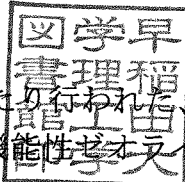 早稲田大
学理工学
図書館
たり行われた
機能性ゼオライ